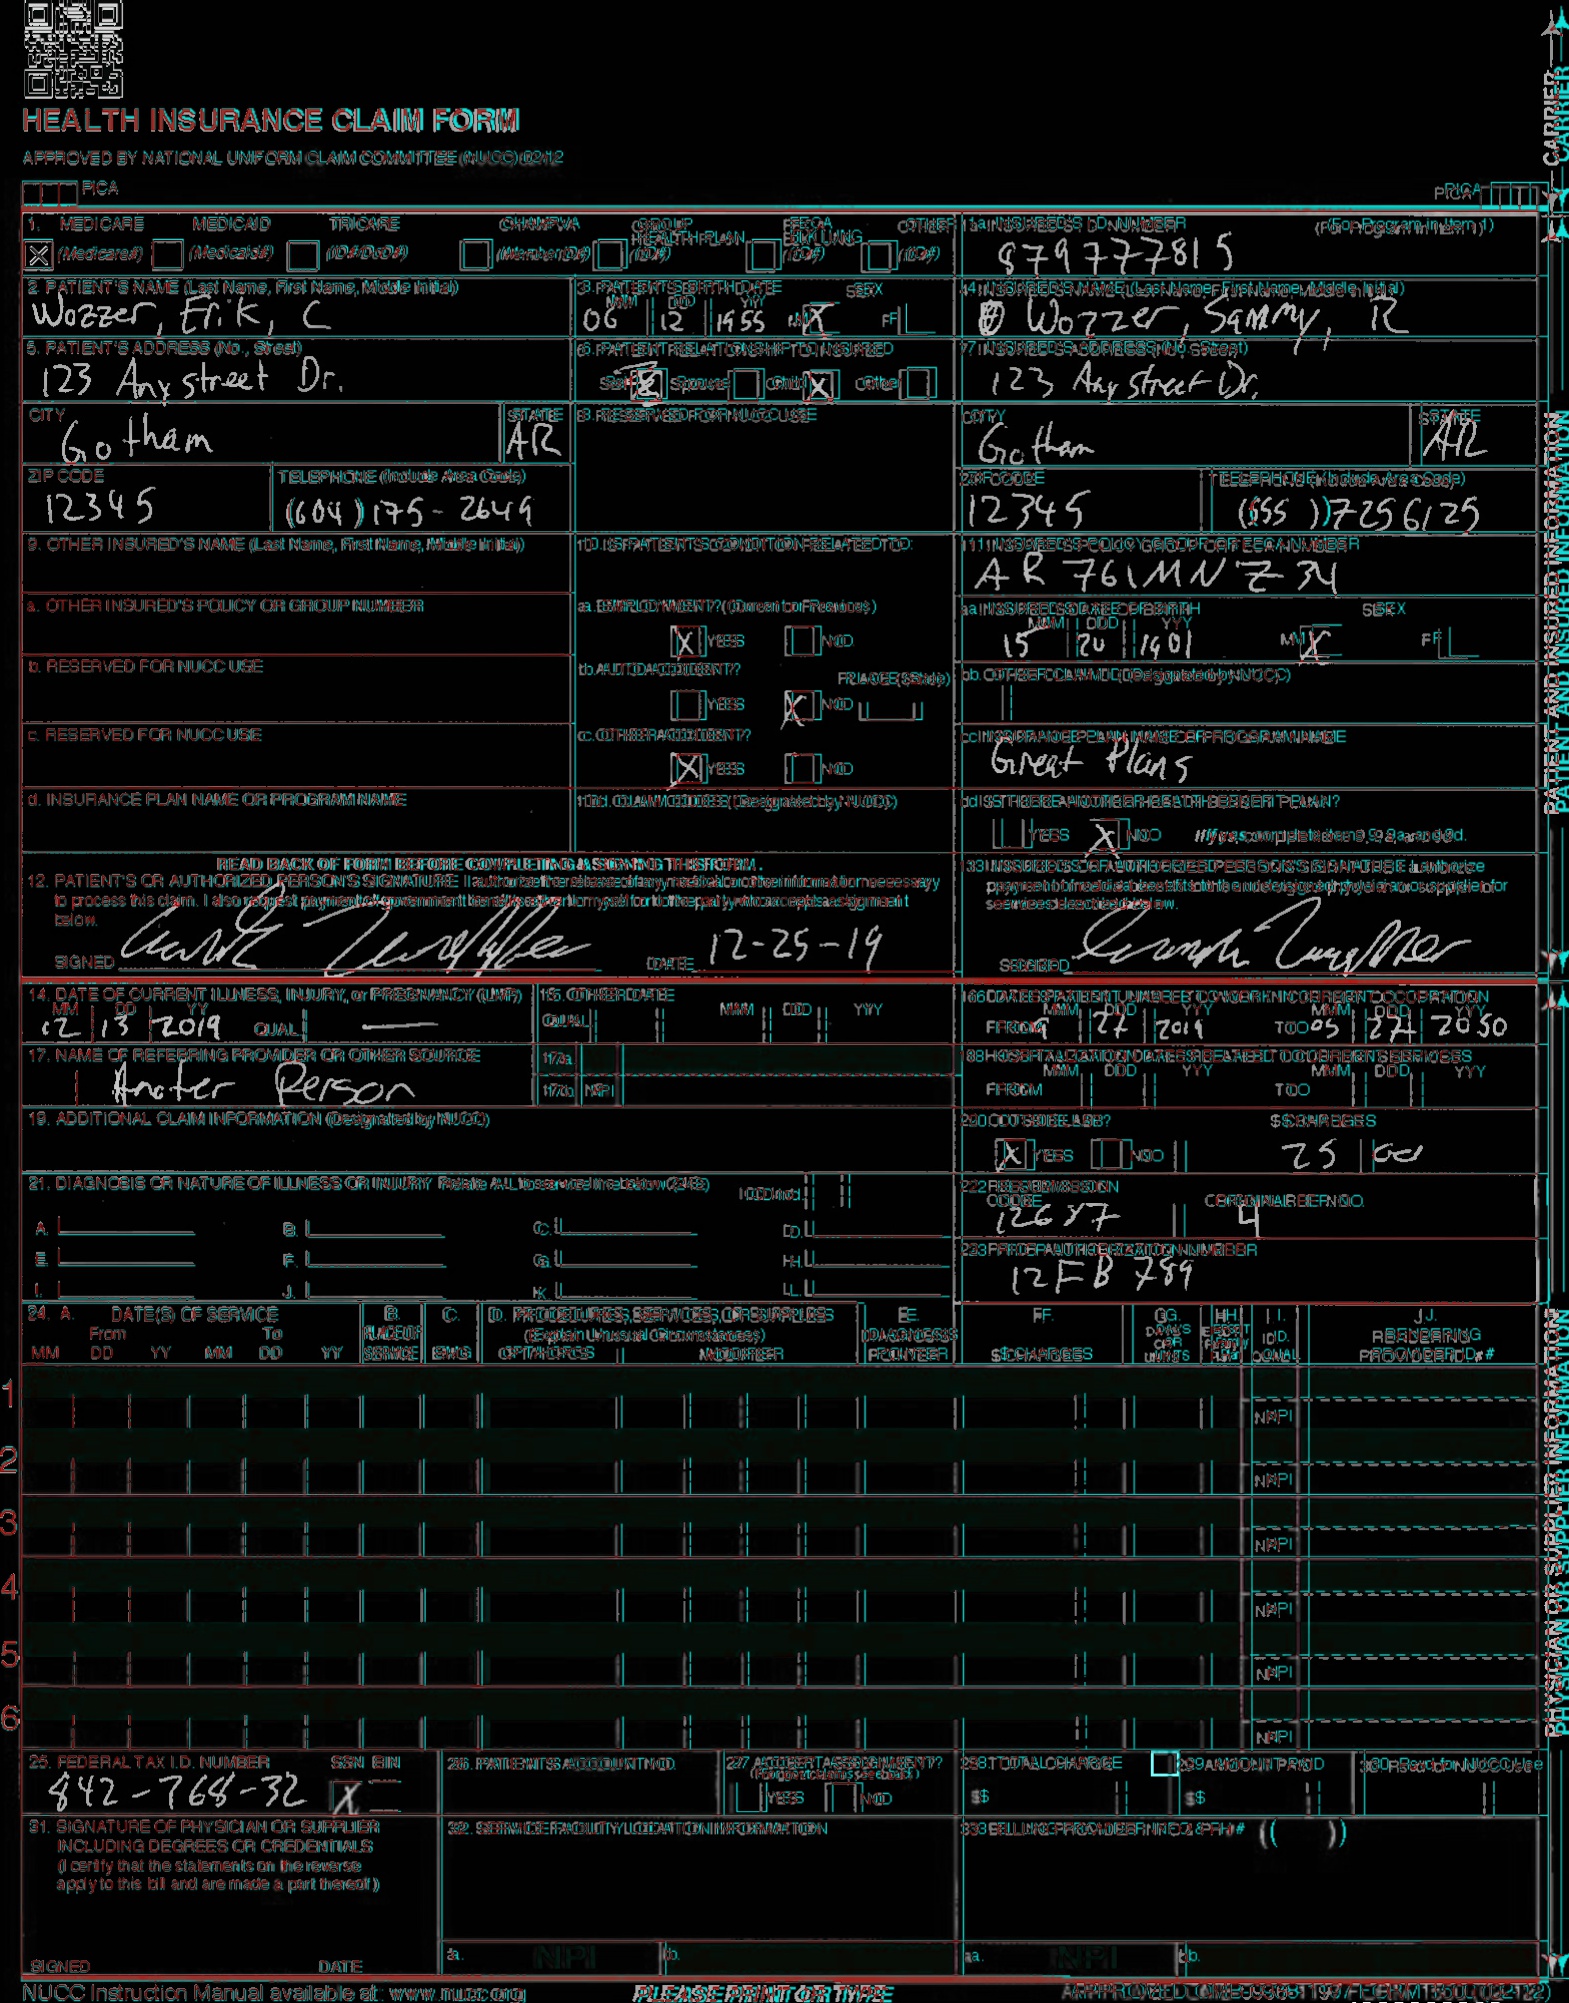 HEALTH INSURANCE CLAIM FORM
APPROVED BY NATIONAL UNIFORM CLAIM COMMITTEE (NUCC) 02/12
PICA PICA
CARRIER
1. MEDICARE MEDICAID TRICARE CHAMPVA GROUP HEALTH PLAN FECA BLK LUNG OTHER
X (Medicare#) (Medicaid#) (ID#/DoD#) (Member ID#) (ID#) (ID#) (ID#)
1a. INSURED'S I.D. NUMBER (For Program in Item 1)
879777815
2. PATIENT'S NAME (Last Name, First Name, Middle Initial)
Wozzer, Erik, C
3. PATIENT'S BIRTH DATE SEX
MM DD YY
06 12 1955 M X F
4. INSURED'S NAME (Last Name, First Name, Middle Initial)
Wozzer, Sammy, R
5. PATIENT'S ADDRESS (No., Street)
123 Any street Dr.
6. PATIENT RELATIONSHIP TO INSURED
Self Spouse Child X Other
7. INSURED'S ADDRESS (No., Street)
123 Any street Dr.
CITY STATE
Gotham AR
8. RESERVED FOR NUCC USE
CITY STATE
Gotham AR
ZIP CODE TELEPHONE (Include Area Code)
12345 (604) 175-2649
ZIP CODE TELEPHONE (Include Area Code)
12345 (555) 7256125
9. OTHER INSURED'S NAME (Last Name, First Name, Middle Initial)
10. IS PATIENT'S CONDITION RELATED TO:
11. INSURED'S POLICY GROUP OR FECA NUMBER
AR 761MNZ34
a. OTHER INSURED'S POLICY OR GROUP NUMBER
a. EMPLOYMENT? (Current or Previous)
X YES NO
a. INSURED'S DATE OF BIRTH SEX
MM DD YY
15 20 1901 M X F
b. RESERVED FOR NUCC USE
b. AUTO ACCIDENT? PLACE (State)
YES X NO
b. OTHER CLAIM ID (Designated by NUCC)
c. RESERVED FOR NUCC USE
c. OTHER ACCIDENT?
X YES NO
c. INSURANCE PLAN NAME OR PROGRAM NAME
Great Plans
d. INSURANCE PLAN NAME OR PROGRAM NAME
10d. CLAIM CODES (Designated by NUCC)
d. IS THERE ANOTHER HEALTH BENEFIT PLAN?
YES X NO If yes, complete items 9, 9a, and 9d.
READ BACK OF FORM BEFORE COMPLETING & SIGNING THIS FORM.
12. PATIENT'S OR AUTHORIZED PERSON'S SIGNATURE I authorize the release of any medical or other information necessary
to process this claim. I also request payment of government benefits either to myself or to the party who accepts assignment
below.
SIGNED DATE 12-25-19
13. INSURED'S OR AUTHORIZED PERSON'S SIGNATURE I authorize
payment of medical benefits to the undersigned physician or supplier for
services described below.
SIGNED
PATIENT AND INSURED INFORMATION
14. DATE OF CURRENT ILLNESS, INJURY, or PREGNANCY (LMP)
MM DD YY
12 13 2019 QUAL.
15. OTHER DATE
QUAL. MM DD YY
16. DATES PATIENT UNABLE TO WORK IN CURRENT OCCUPATION
MM DD YY MM DD YY
FROM 9 27 2019 TO 05 27 2030
17. NAME OF REFERRING PROVIDER OR OTHER SOURCE
Anoter Person
17a.
17b. NPI
18. HOSPITALIZATION DATES RELATED TO CURRENT SERVICES
MM DD YY MM DD YY
FROM TO
19. ADDITIONAL CLAIM INFORMATION (Designated by NUCC)
20. OUTSIDE LAB? $ CHARGES
X YES NO 25 00
21. DIAGNOSIS OR NATURE OF ILLNESS OR INJURY Relate A-L to service line below (24E) ICD Ind.
A. B. C. D.
E. F. G. H.
I. J. K. L.
22. RESUBMISSION CODE ORIGINAL REF. NO.
12687 4
23. PRIOR AUTHORIZATION NUMBER
12FB789
24. A. DATE(S) OF SERVICE B. C. D. PROCEDURES, SERVICES, OR SUPPLIES E. F. G. H. I. J.
From To PLACE OF (Explain Unusual Circumstances) DIAGNOSIS DAYS OR EPSDT Family ID. RENDERING
MM DD YY MM DD YY SERVICE EMG CPT/HCPCS MODIFIER POINTER $ CHARGES UNITS Plan QUAL. PROVIDER ID. #
1 NPI
2 NPI
3 NPI
4 NPI
5 NPI
6 NPI
PHYSICIAN OR SUPPLIER INFORMATION
25. FEDERAL TAX I.D. NUMBER SSN EIN
842-768-32 X
26. PATIENT'S ACCOUNT NO.
27. ACCEPT ASSIGNMENT?
(For govt. claims, see back)
YES NO
28. TOTAL CHARGE
$
29. AMOUNT PAID
$
30. Rsvd for NUCC Use
31. SIGNATURE OF PHYSICIAN OR SUPPLIER
INCLUDING DEGREES OR CREDENTIALS
(I certify that the statements on the reverse
apply to this bill and are made a part thereof.)
SIGNED DATE
32. SERVICE FACILITY LOCATION INFORMATION
a. NPI b.
33. BILLING PROVIDER INFO & PH # ( )
a. NPI b.
NUCC Instruction Manual available at: www.nucc.org
PLEASE PRINT OR TYPE